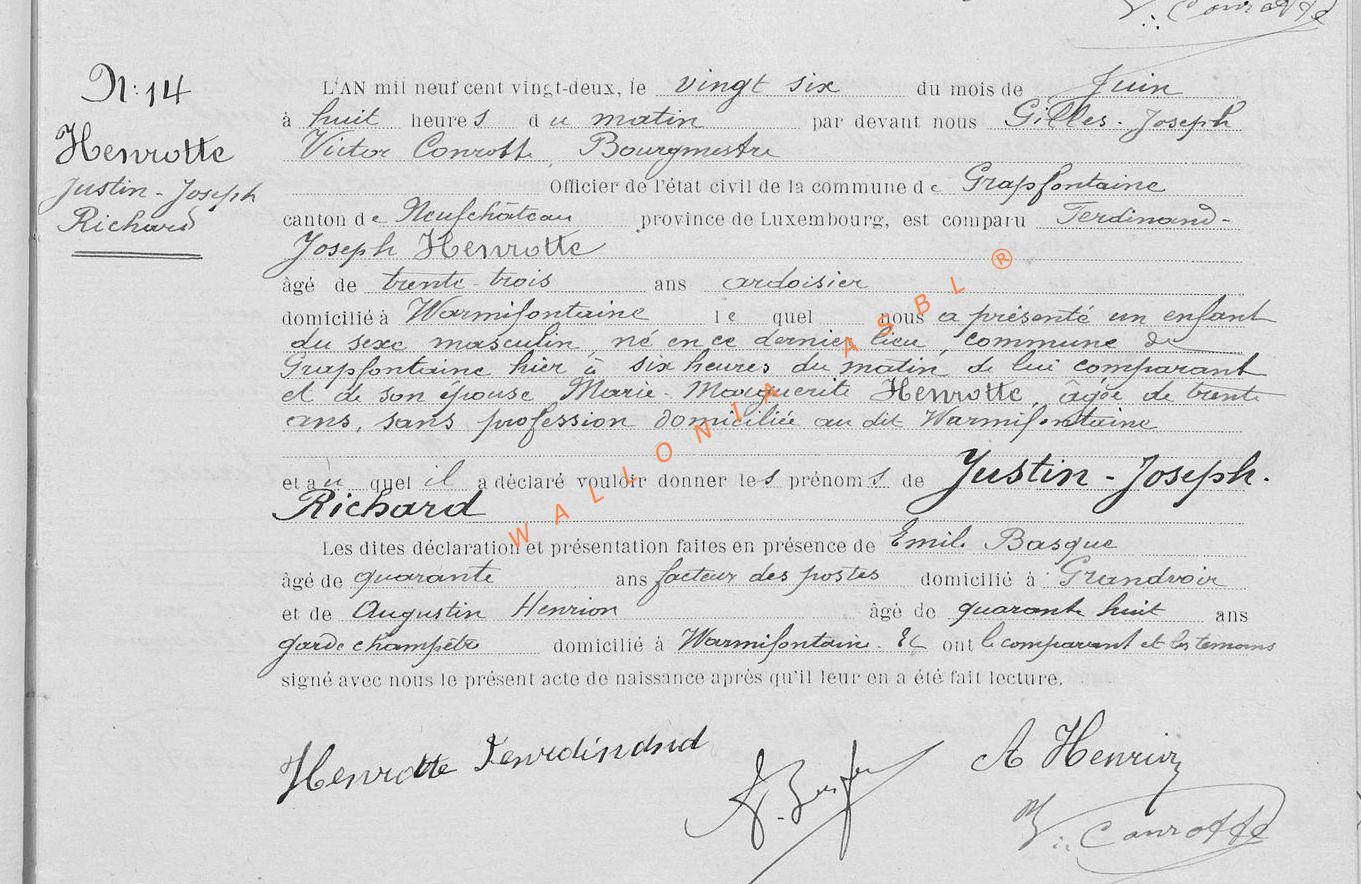 V. Conrotte
N: 14
Henrotte
Justin - Joseph
Richard
L'AN mil neuf cent vingt-deux, le vingt six du mois de Juin
à huit heures du matin par devant nous Gilles - Joseph
Victor Conrotte, Bourgmestre
Officier de l'état civil de la commune de Grapfontaine
canton de Neufchâteau province de Luxembourg, est comparu Ferdinand-
Joseph Henrotte
âgé de trente-trois ans ardoisier
domicilié à Warmifontaine le quel nous a présenté un enfant
du sexe masculin, né en ce dernier lieu, commune de
Grapfontaine hier à six heures du matin, de lui comparant
et de son épouse Marie-Marguerite Henrotte, âgée de trente
ans, sans profession domiciliée au dit Warmifontaine
et au quel il a déclaré vouloir donner les prénoms de Justin - Joseph.
Richard
Les dites déclaration et présentation faites en présence de Emile Basque
âgé de quarante ans facteur des postes domicilié à Grandvoir
et de Augustin Henrion âgé de quarante huit ans
garde champêtre domicilié à Warmifontaine. Et ont le comparant et les témoins
signé avec nous le présent acte de naissance après qu'il leur en a été fait lecture.
WALLONIA ASBL ®
Henrotte Ferdinand
A Henrion
V. Conrotte